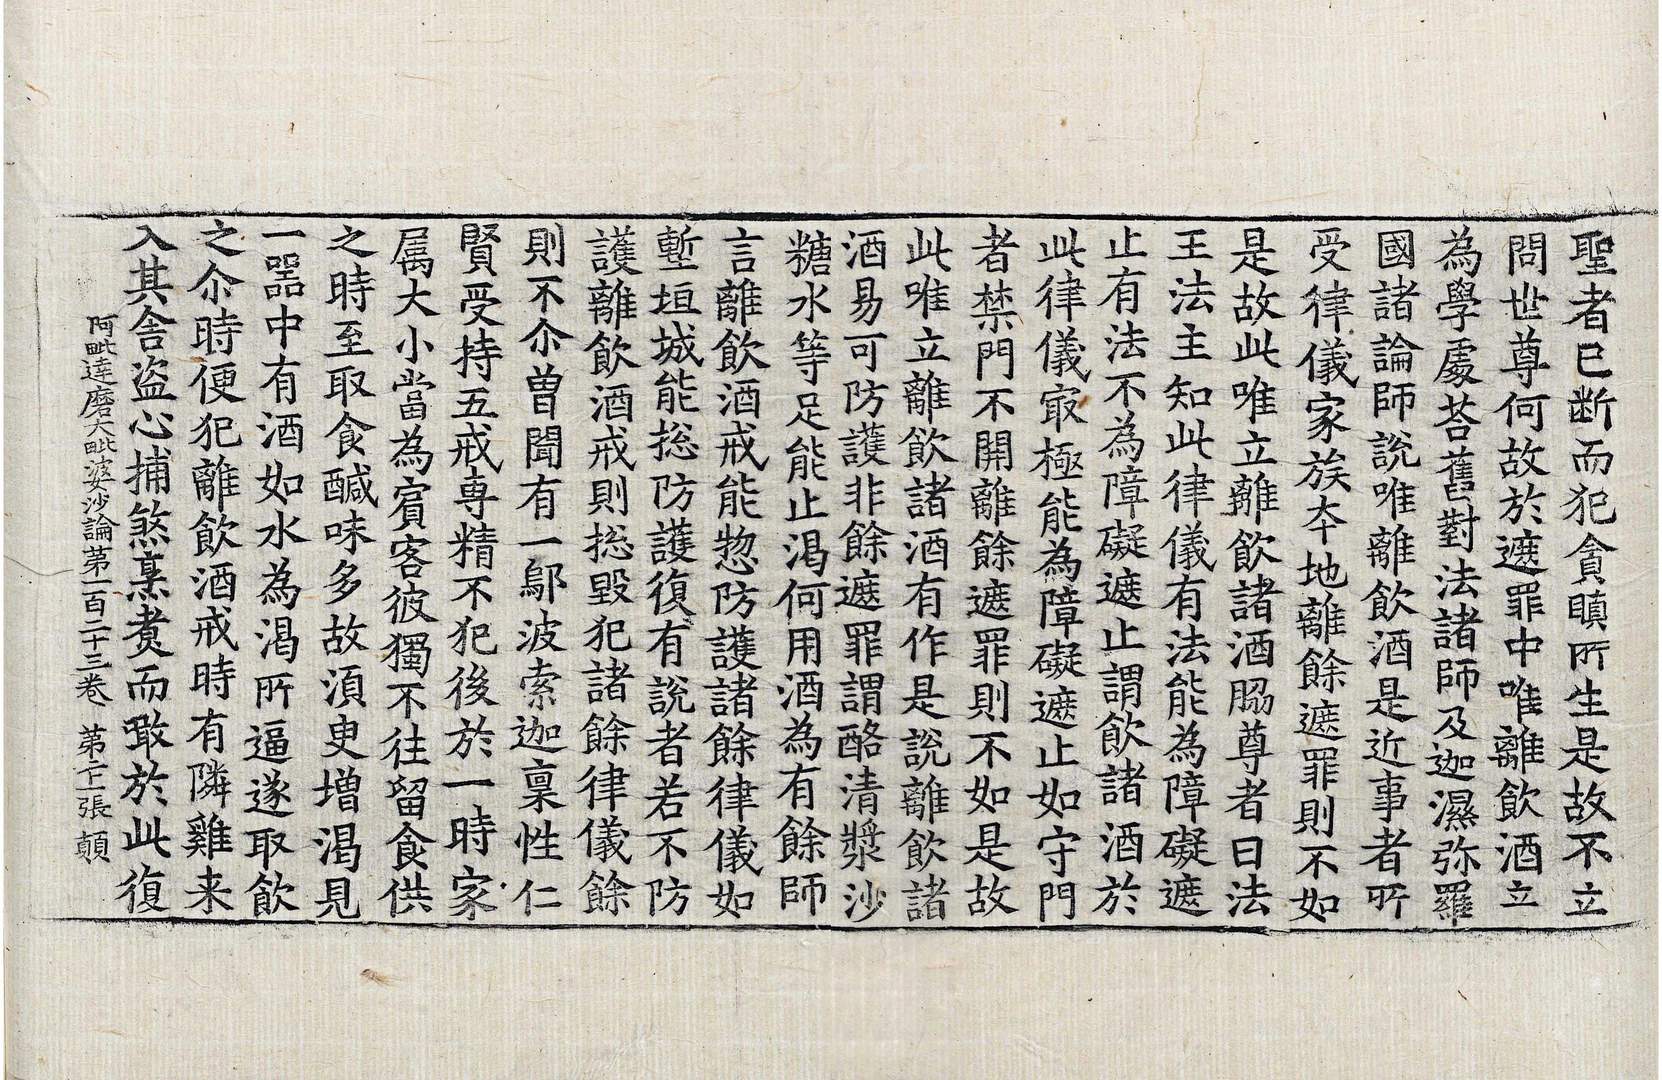 聖者已断而犯貪瞋所生是故不立
問世尊何故於遮罪中唯離飲酒立
為學處荅舊對法諸師及迦濕弥羅
國諸論師說唯離飲酒是近事者所
受律儀家族夲地離餘遮罪則不如
是故此唯立離飲諸酒脇尊者曰法
王法主知此律儀有法能為障礙遮
止有法不為障礙遮止謂飲諸酒於
此律儀㝡極能為障礙遮止如守門
者禁門不開離餘遮罪則不如是故
此唯立離飲諸酒有作是說離飲諸
酒易可防護非餘遮罪謂酪清漿沙
糖水等足能止渴何用酒為有餘師
言離飲酒戒能惣防護諸餘律儀如
塹垣城能捴防護復有說者若不防
護離飲酒戒則捴毀犯諸餘律儀餘
則不尒曾聞有一鄔波索迦稟性仁
賢受持五戒専精不犯後於一時家
属大小當為賔客彼獨不往留食供
之時至取食醎味多故湏臾增渴見
一噐中有酒如水為渴所逼遂取飲
之尒時便犯離飲酒戒時有隣雞来
入其舍盜心捕煞烹煑而噉於此復
阿毗達磨大毗婆沙論第一百二十三卷 第二十二張 顛